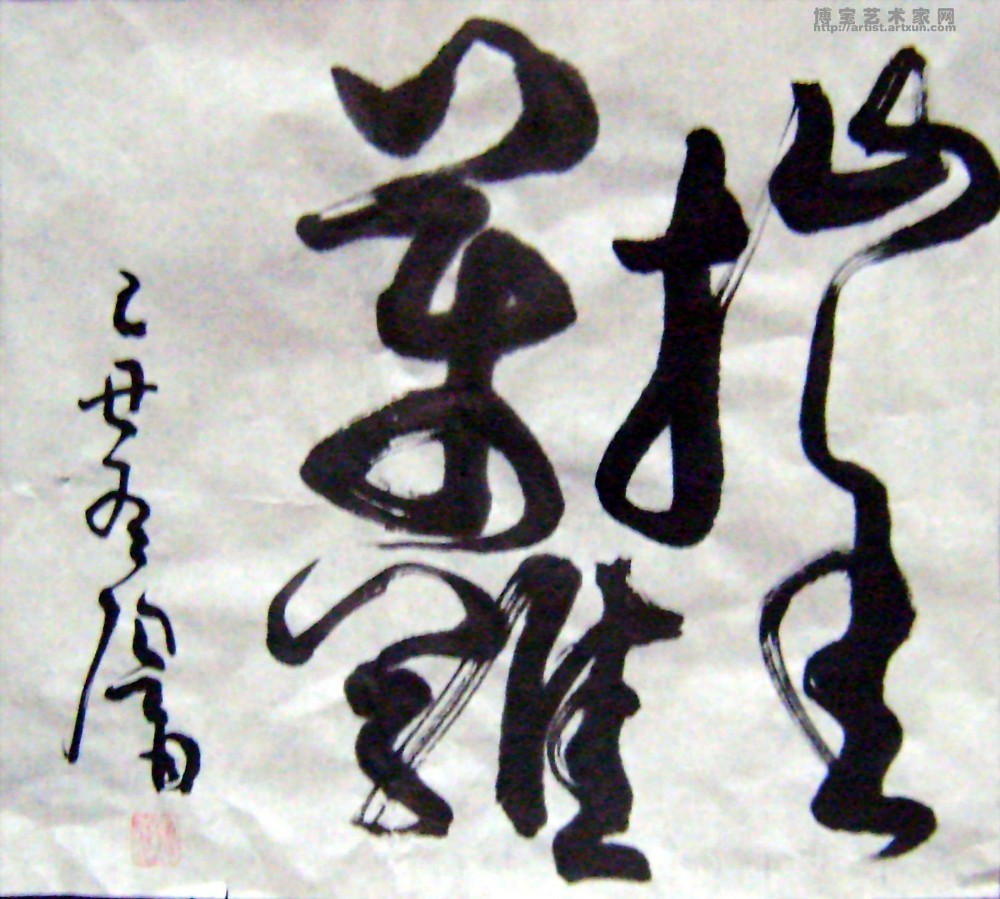 博宝艺术家网
http://artist.artxun.com
摧
萬難
己丑冬